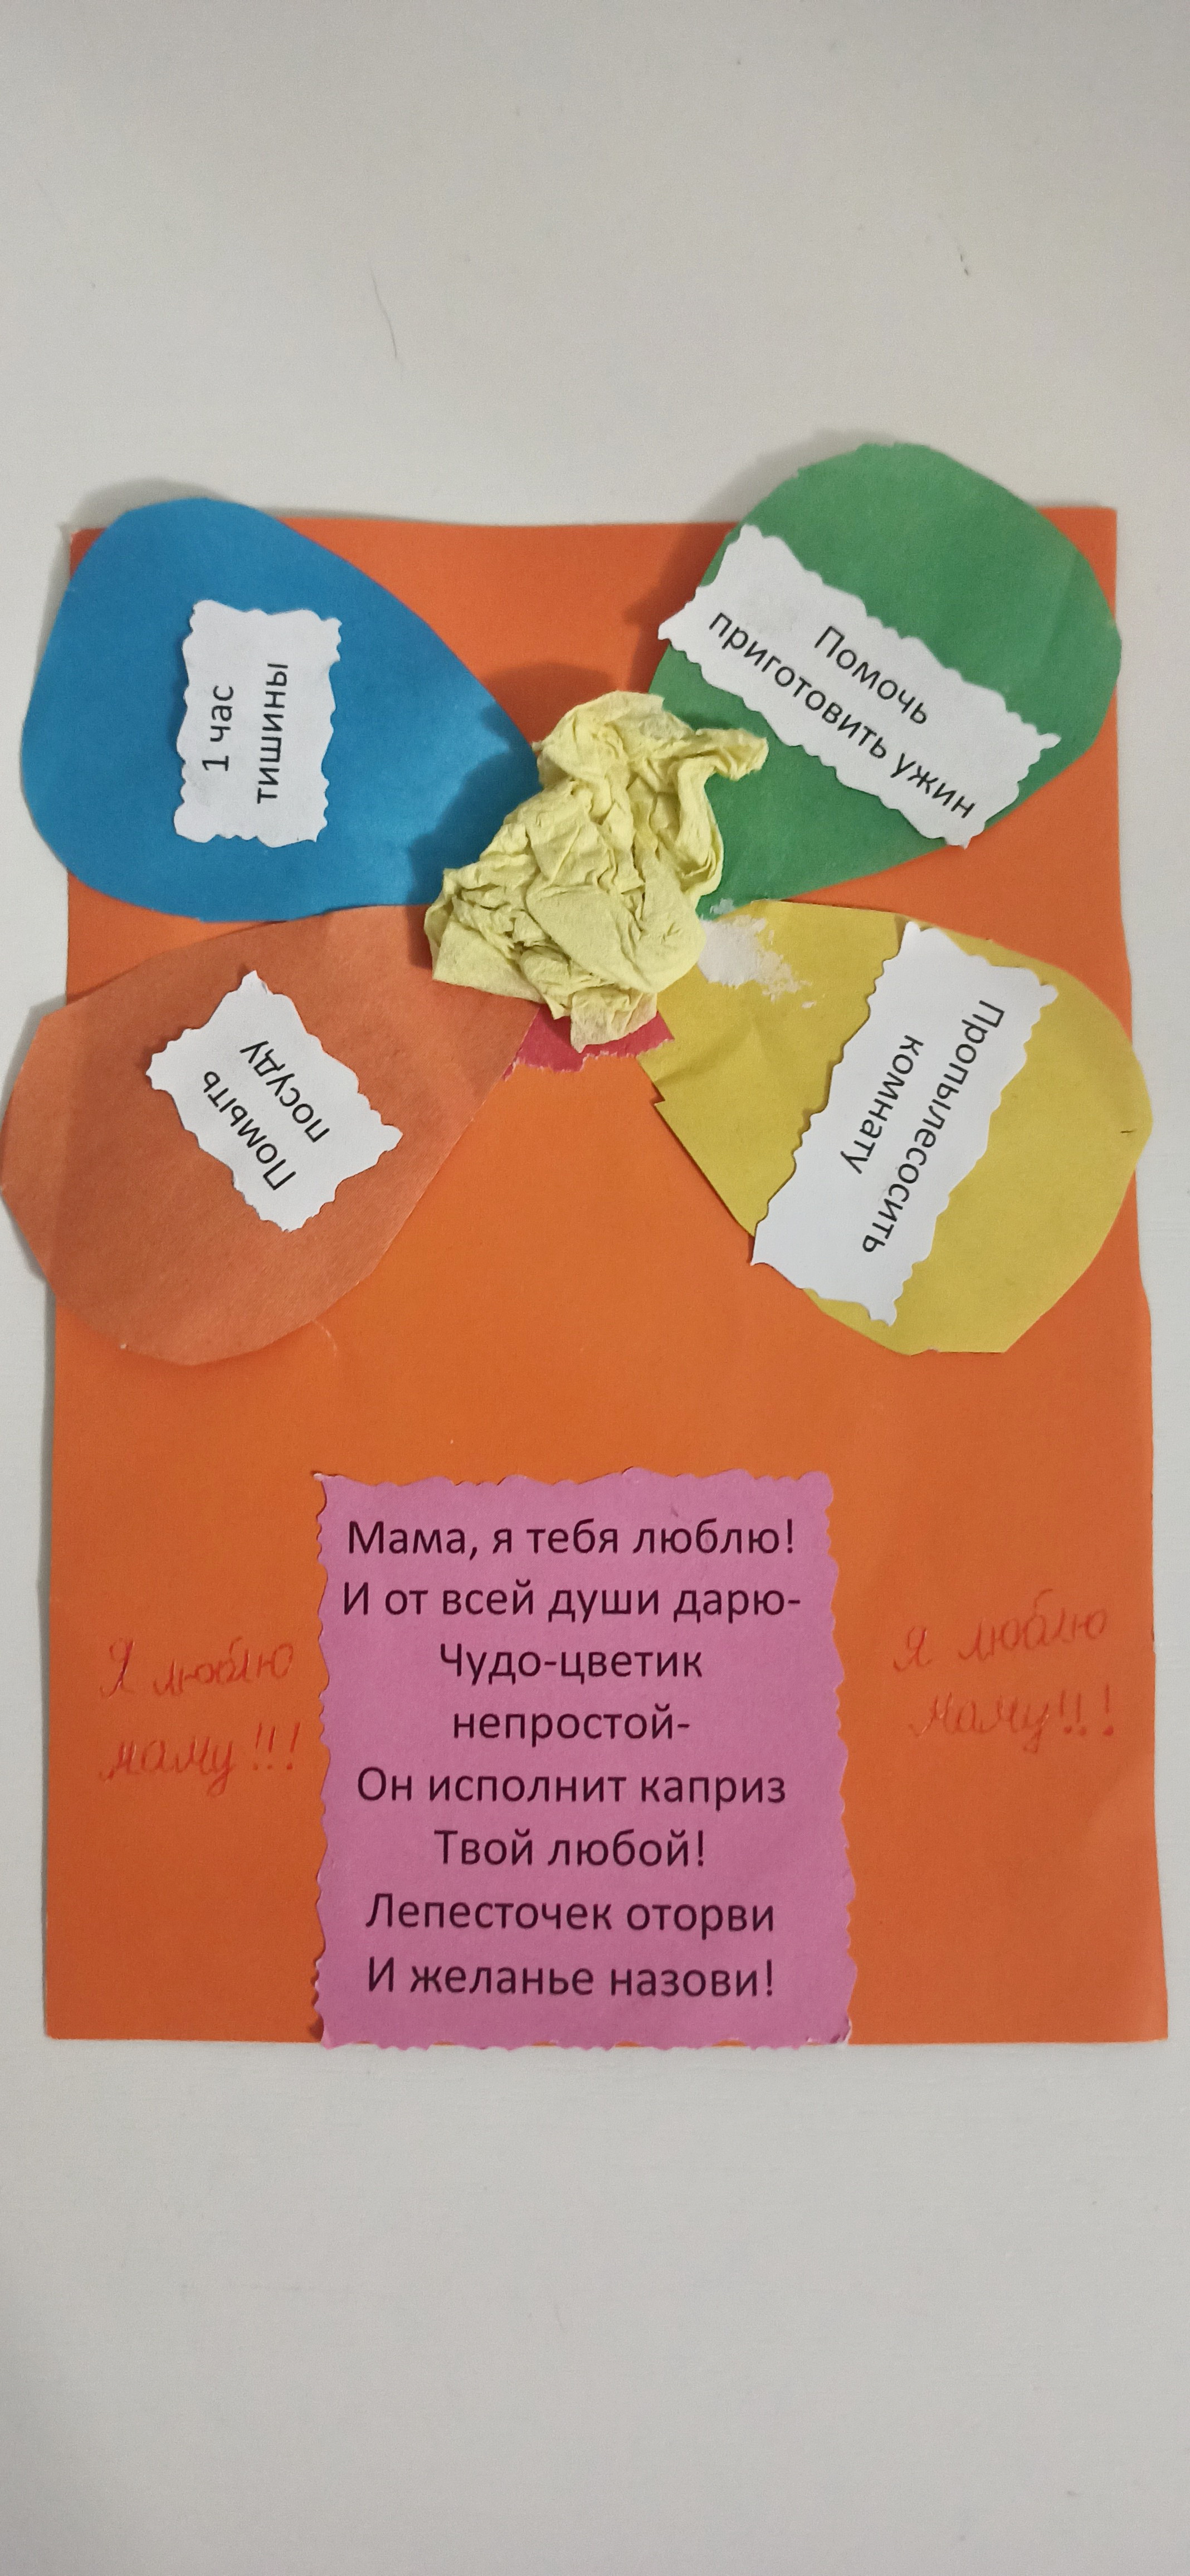 1 час
тишины
Помочь
приготовить ужин
Помыть
посуду
Пропылесосить
комнату
Мама, я тебя люблю!
И от всей души дарю-
Чудо-цветик
непростой-
Он исполнит каприз
Твой любой!
Лепесточек оторви
И желанье назови!
Я люблю
маму!!!
Я люблю
маму!!!